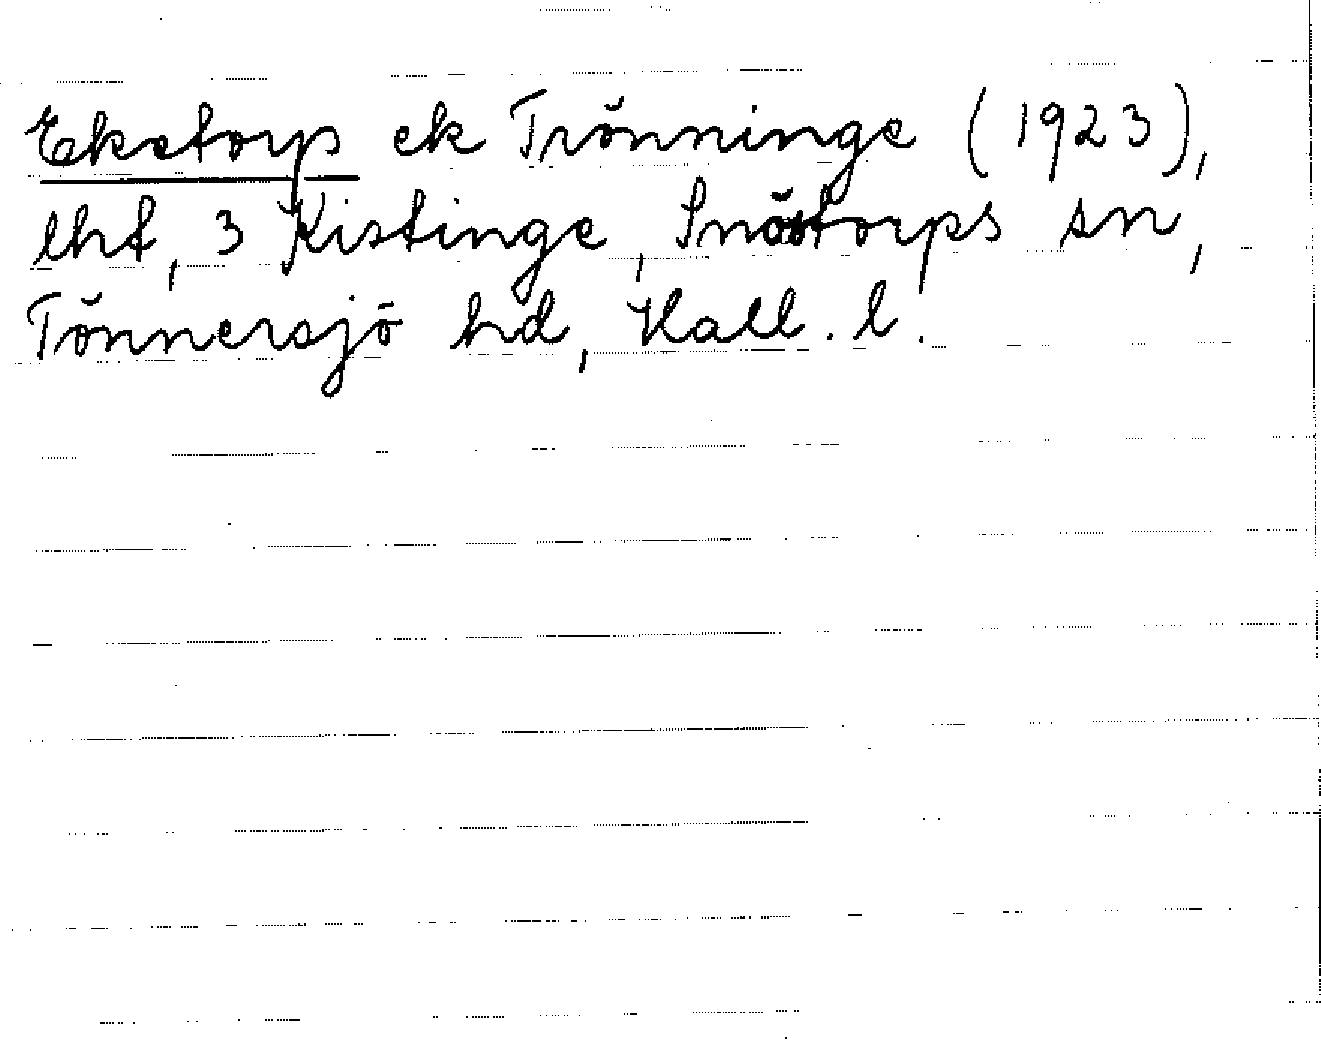 Ekstorp ek Trönninge (1923),
lht, 3 Kistinge, Snöstorps sn,
Tönnersjö hd, Hall. l.